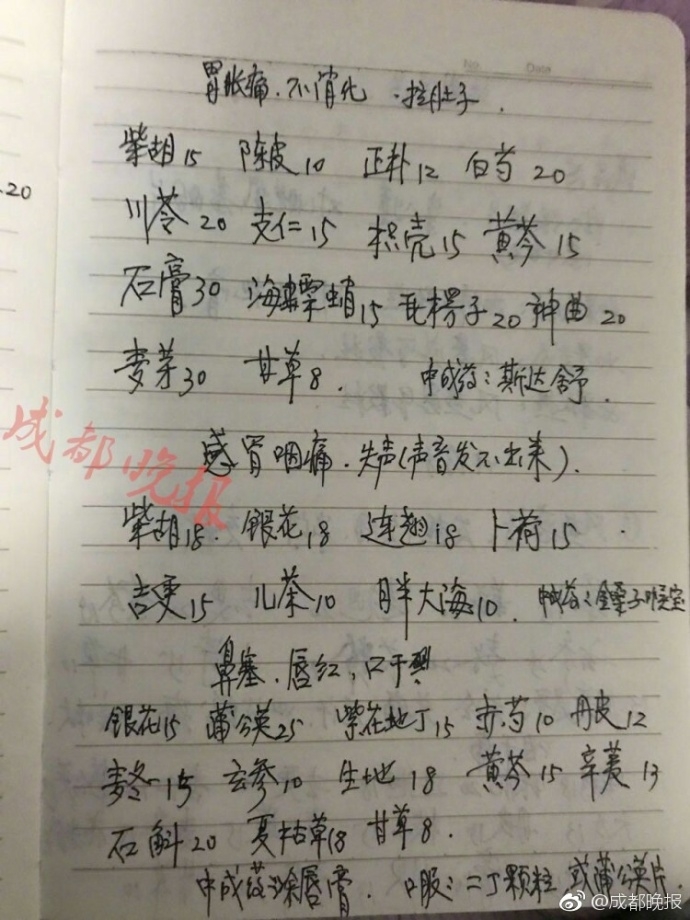 No. Date
胃胀痛.不消化.拉肚子.
柴胡15 陈皮10 正朴12 白芍20
20
川芎20 支仁15 枳壳15 黄芩15
石膏30 海螵蛸15 瓦楞子20 神曲20
麦芽30 甘草8. 中成药:斯达舒.
成都晚报
感冒咽痛.失声(声音发不出来).
柴胡18. 银花18 连翘18 卜荷15
吉更15 儿茶10 胖大海10. 中成药:金嗓子喉宝
鼻塞.唇红,口干
银花15 蒲公英25 紫花地丁15 赤芍10 丹皮12
麦冬15 玄参10 生地18 黄芩15 辛荑13
石斛20 夏枯草18 甘草8.
中成药:涂唇膏. 口服:二丁颗粒 或蒲公英片.
@成都晚报